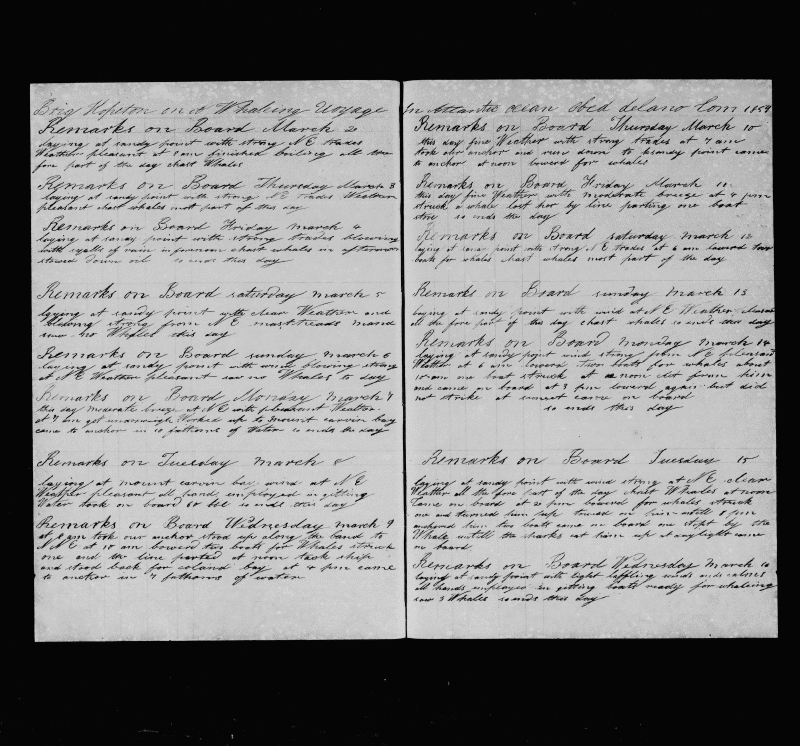 Brig Hopeton on A Whaleing Voyage
Remarks on Board March 2
laying at sandy point with strong N E trades
Weather pleasant at 9 am finished boiling all the
fore part of the day chast Whales
Remarks on Board Thursday March 3
laying at sandy point with strong N E trades Weather
pleasant chast whales most part of this day
Remarks on Board Friday march 4
laying at sandy point with strong trades blowing
with squlls of rain in forenoon chast whales in afternoon
stowed down oil so ends this day
Remarks on Board saturday march 5
laying at sandy point with clear Weather and
blowing strong from N E mastheads mand
saw no Whales this day
Remarks on Board sunday march 6
laying at sandy point with wind blowing strong
at N E Weather pleasant saw no Whales to day
Remarks on Board Monday march 7
this day moderate breeze at N E with pleasant Weather
at 7 am got underweigh Worked up to mount carvin bay
came to anchor in 10 fathoms of Water so ends the day
Remarks on Tuesday march 8
laying at mount carvin bay wind at N E
Weather pleasant all hand employed in gitting
Water took on board 60 bbl so ends this day
Remarks on Board Wednesday march 9
at 6 am took our anchor stood up along the land to
N N E at 10 am lowerd two boats for Whales struck
one and the line parted at noon tack ship
and stood back for bay at 4 pm came
to anchor in 7 fathoms of water
In Atlantic ocean Obed delano Com 1859
Remarks on Board Thursday March 10
this day fine Weather with strong trades at 7 am
took our anchor and run down to sandy point came
to anchor at noon lowerd for whales
Remarks on Board Friday March 11
this day fine Weather with moderate breeze at 4 pm
struck a whale lost her by line parting one boat
stove so ends the day
Remarks on Board saturday march 12
laying at sand point with strong N E trades at 6 am lowerd two
boats for whales chast whales most part of the day
Remarks on Board sunday march 13
laying at sandy point with wind at N E Weather
all the fore part of this day chast whales so ends this day
Remarks on Board monday march 14
laying at sandy point wind strong from N E pleasant
Weather at 6 am lowerd two boats for whales about
10 am one boat struck at noon cut from him
and came on board at 3 pm lowerd again but did
not strike at sunset came on board
so ends this day
Remarks on Board Tuesday 15
laying at sandy point with wind strong at N E clear
Weather all the fore part of the day chast Whales at noon
Came on board at 2 pm lowerd for whales struck
one and turned him up towed on him untill 8 pm
anchored him two boats came on board one stopt by the
Whale untill the sharks eat him up at daylight came
on board
Remarks on Board Wednesday March 16
laying at sandy point with light baffling winds and calmes
all hands employed in gitting boats ready for whaleing
saw 3 Whales so ends this day